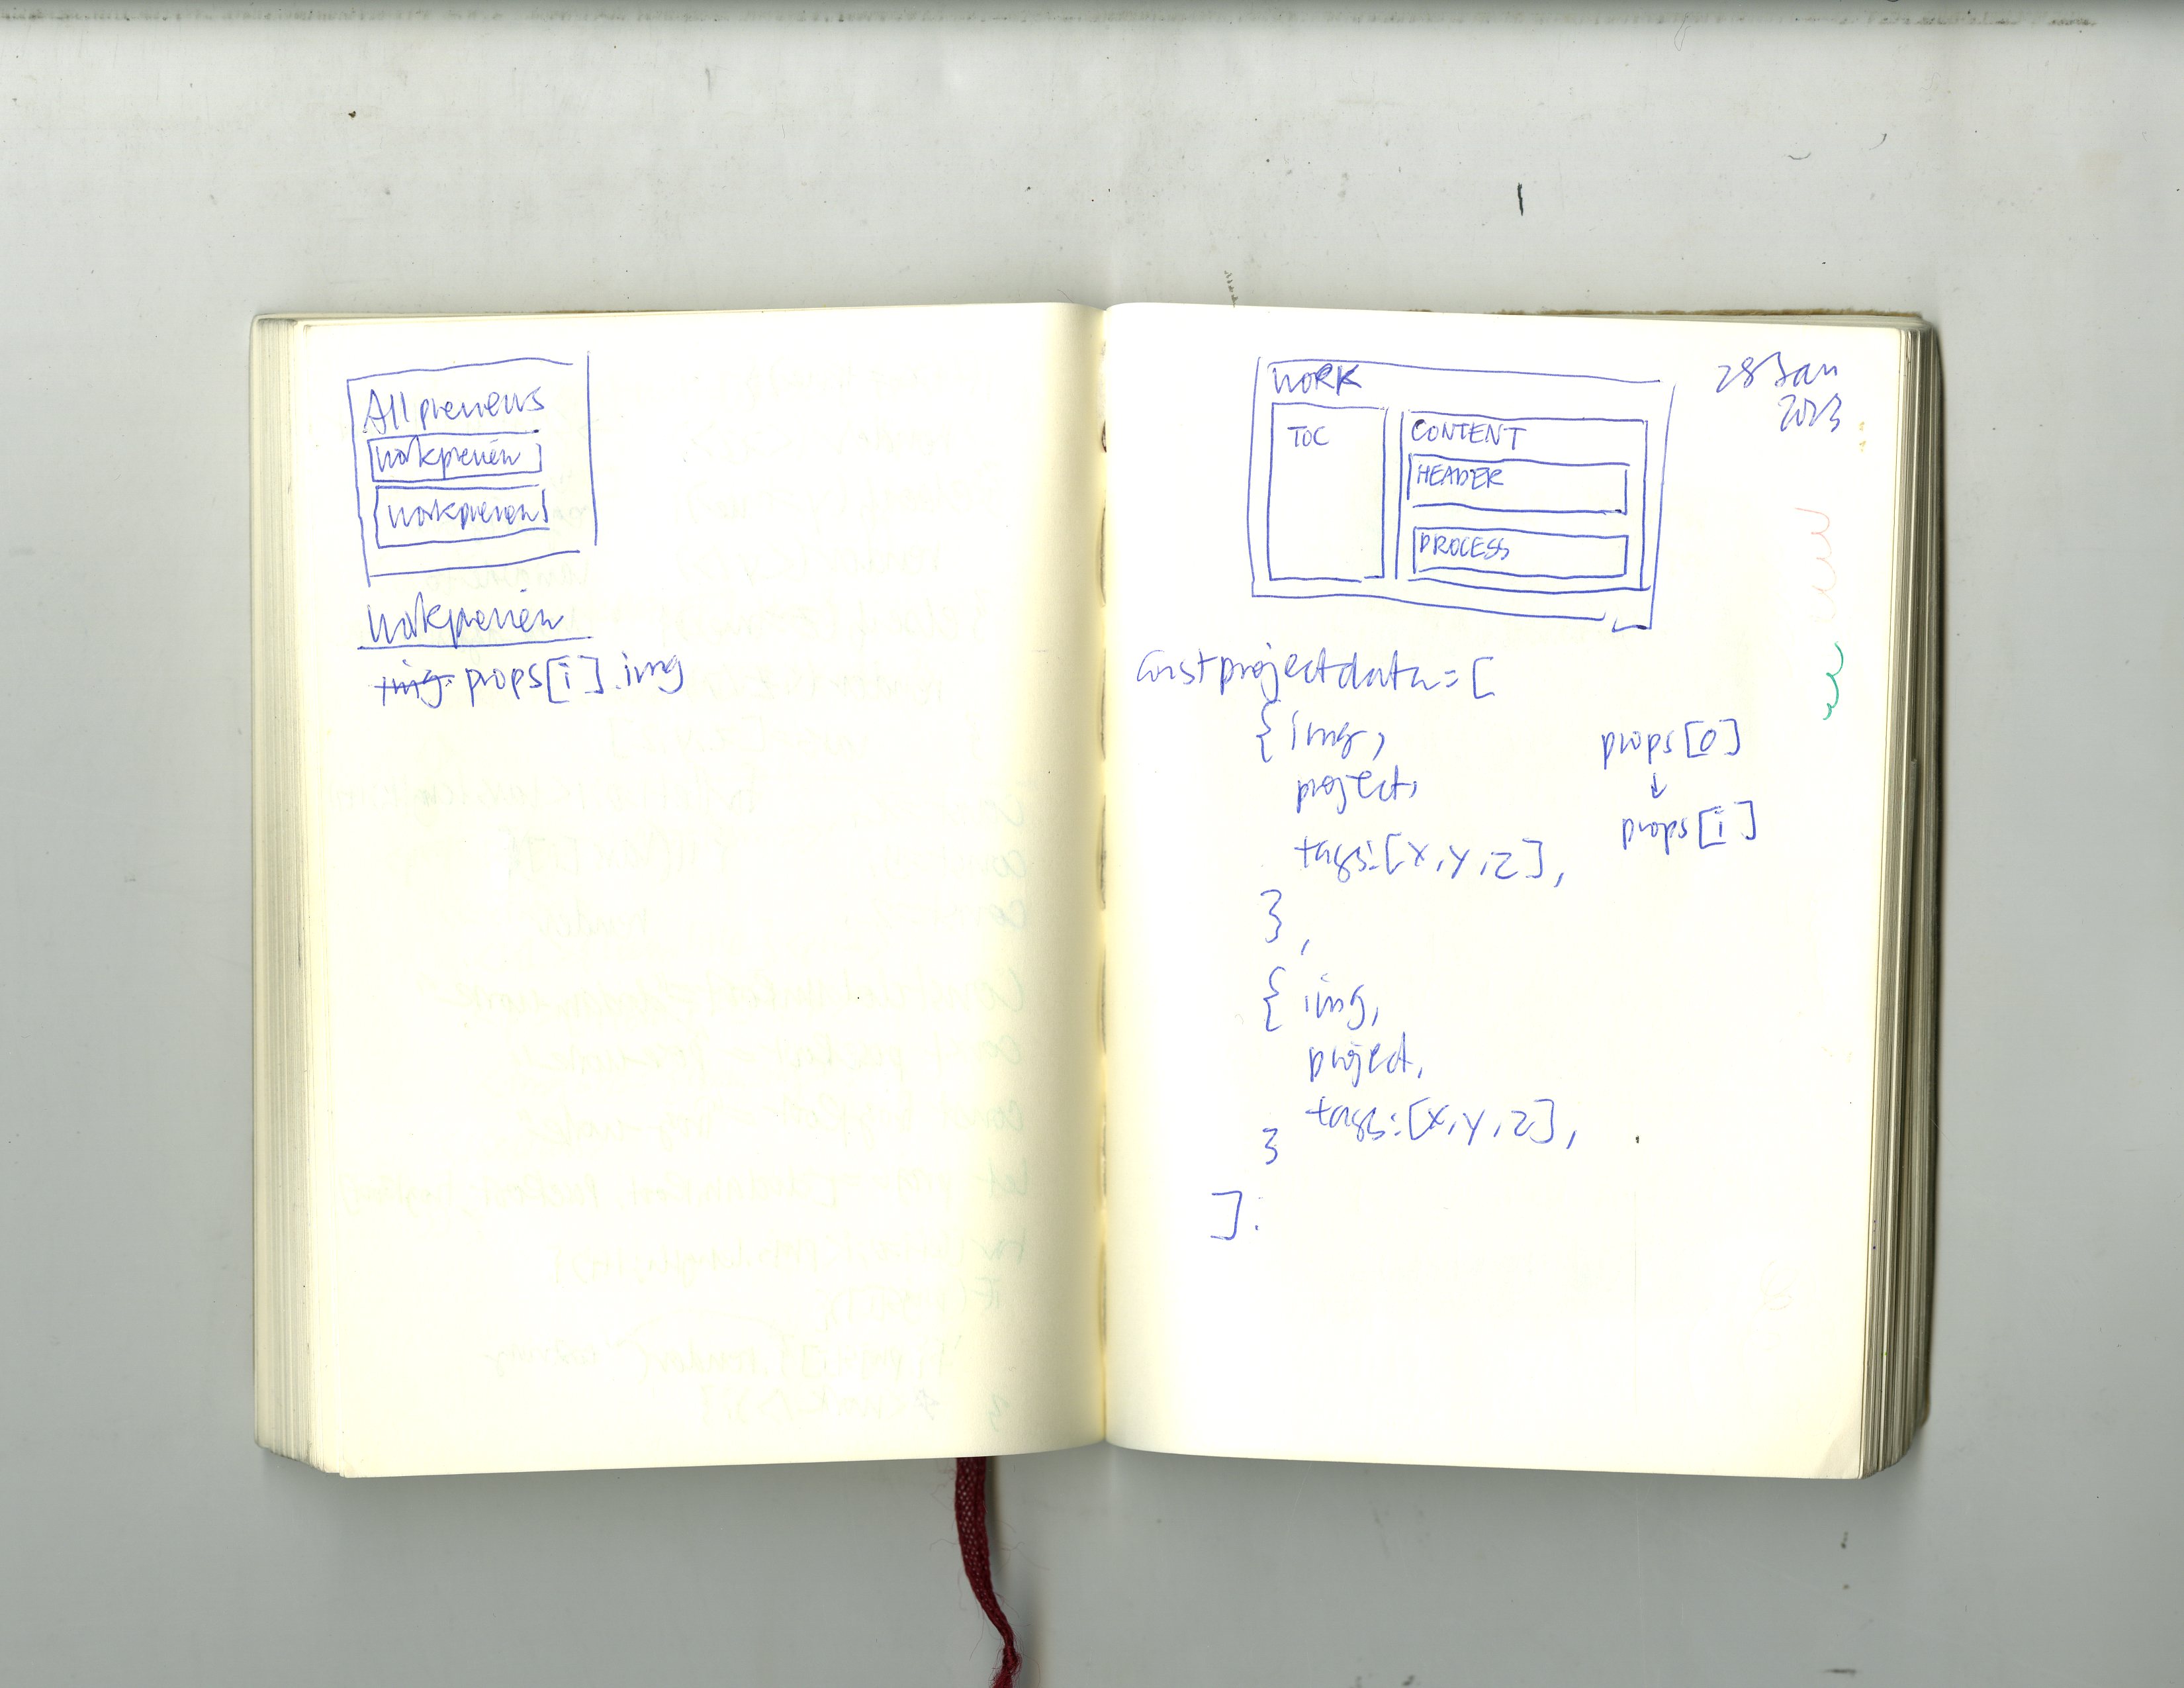 All previews
workpreview
workpreview
workpreview
img. props[i].img
WORK
28 Jan
2023
TOC
CONTENT
HEADER
PROCESS
const projectdata = [
{ img,
project,
tags: [x, y, z],
},
{ img,
project,
tags: [x, y, z],
}
].
props[0]
↓
props[i]